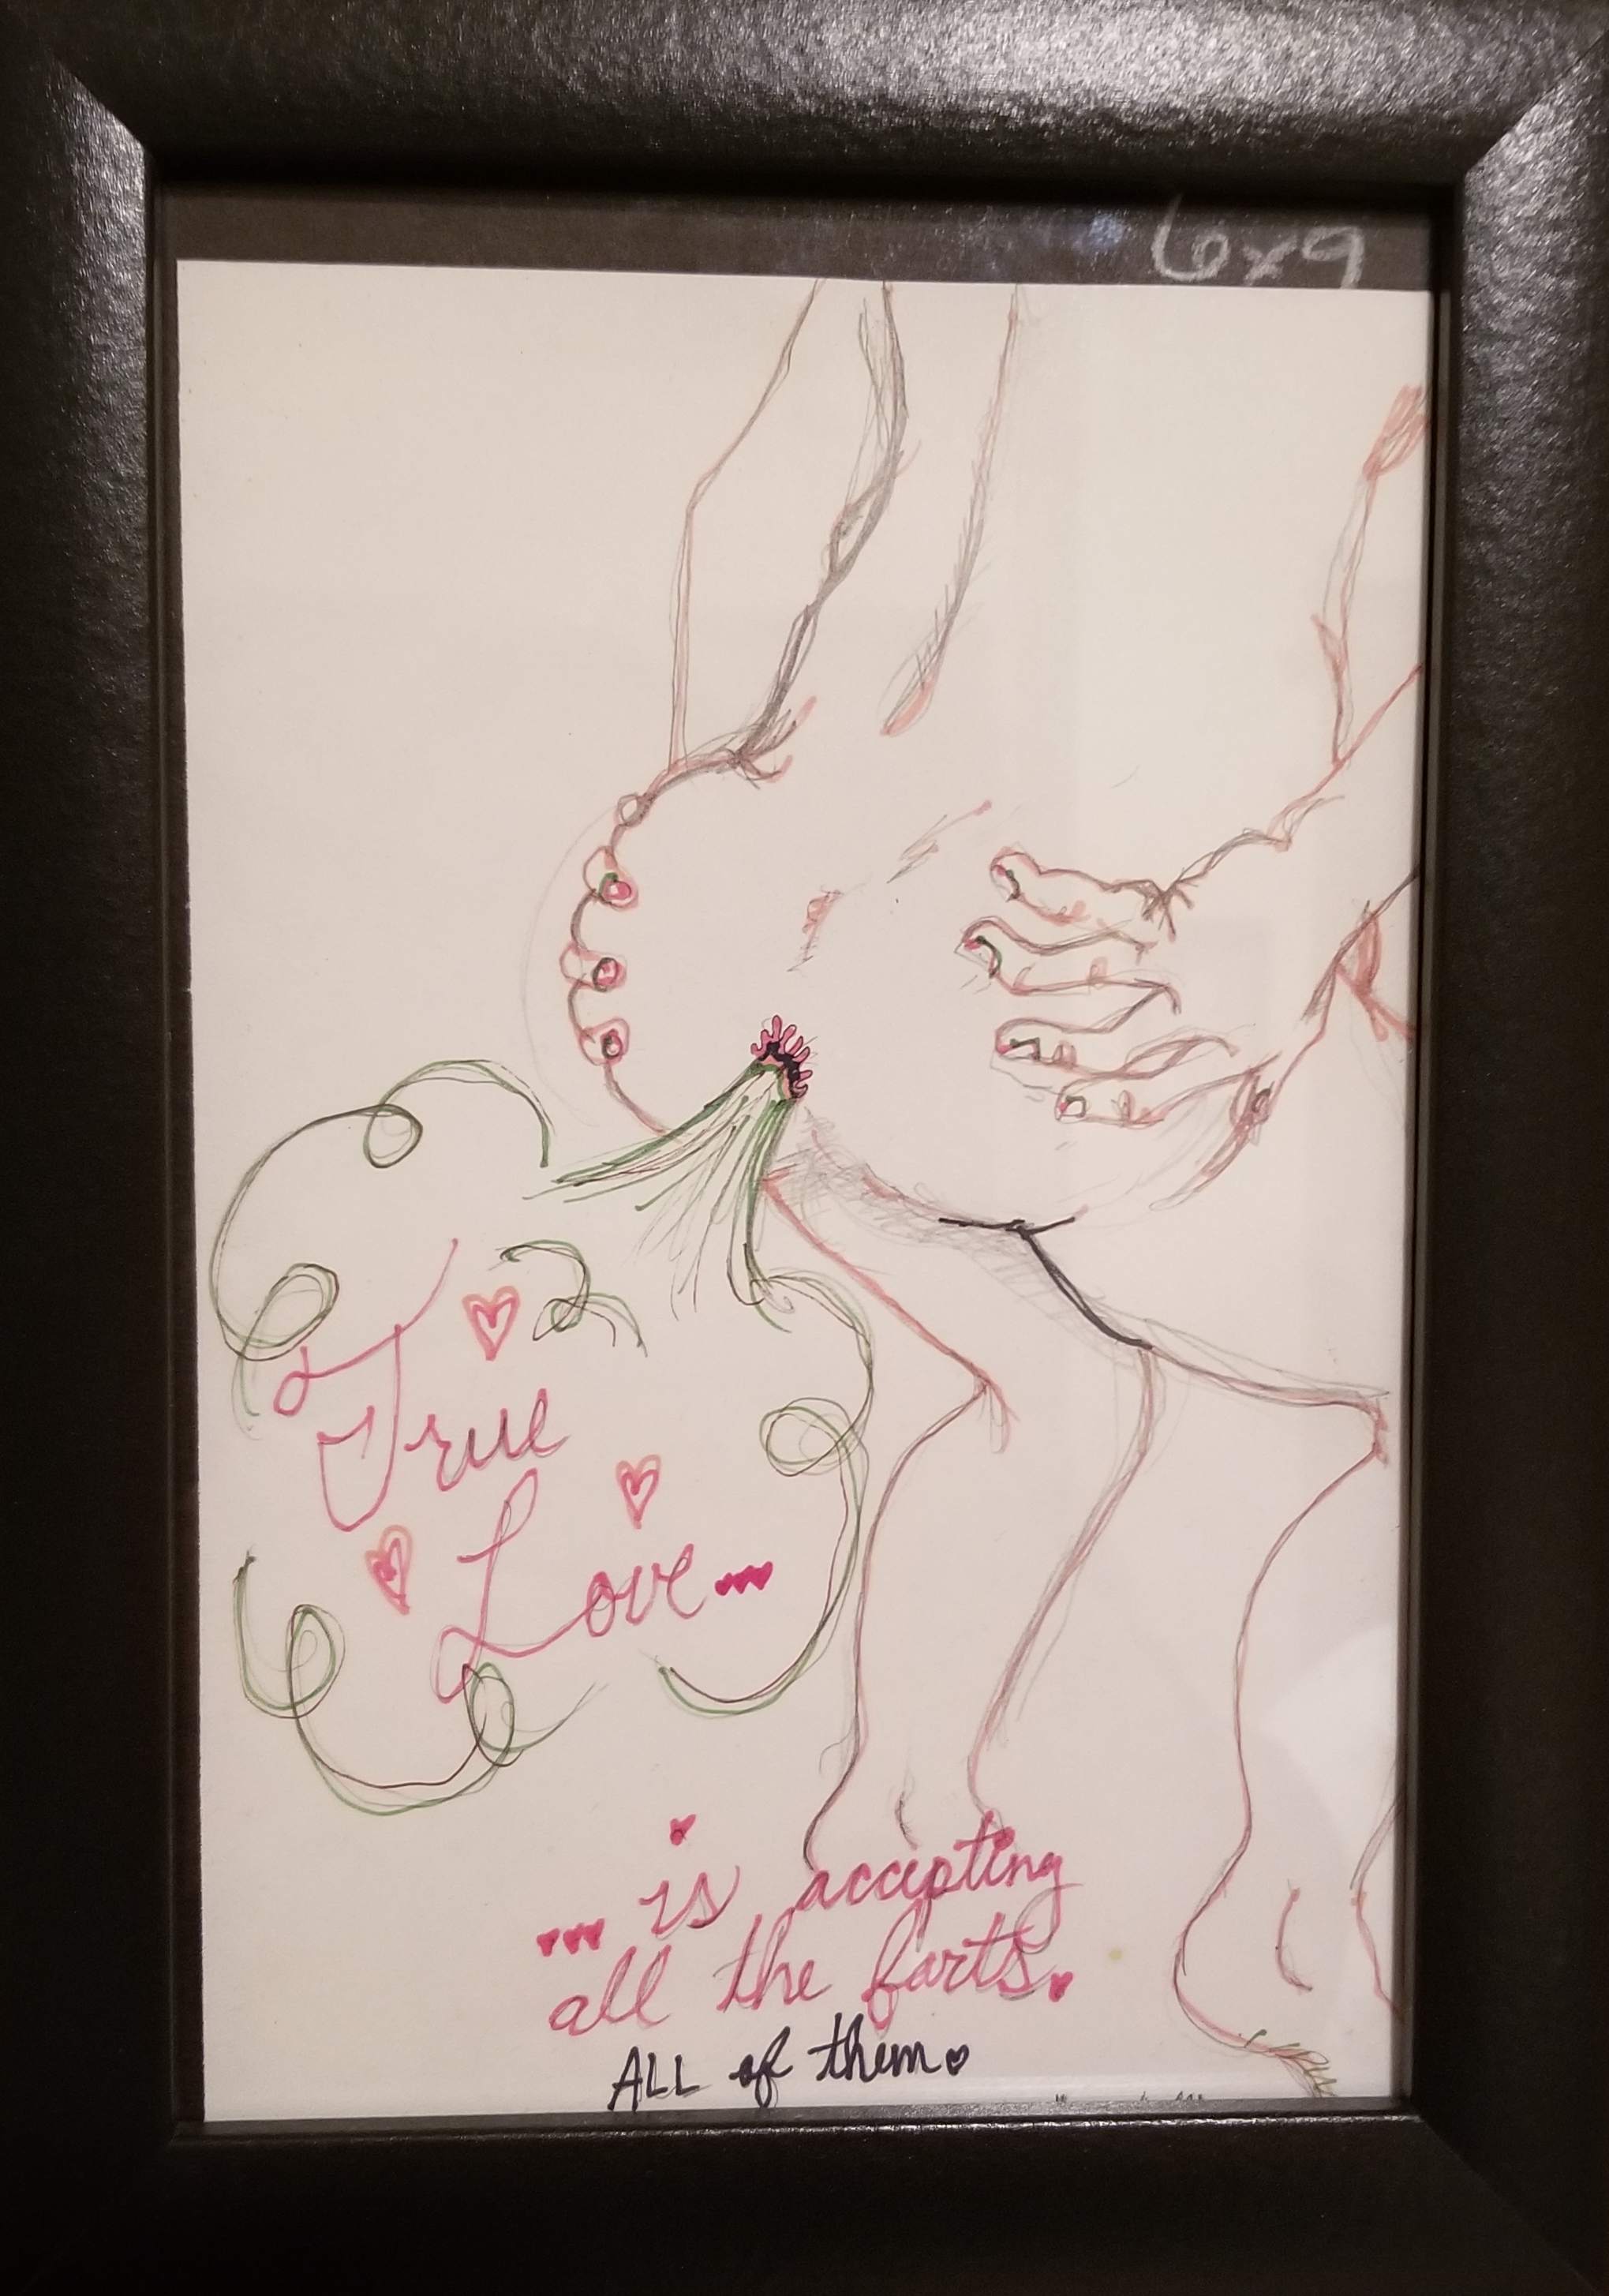 6x9
True
Love...
... is accepting
all the farts.
ALL of them.